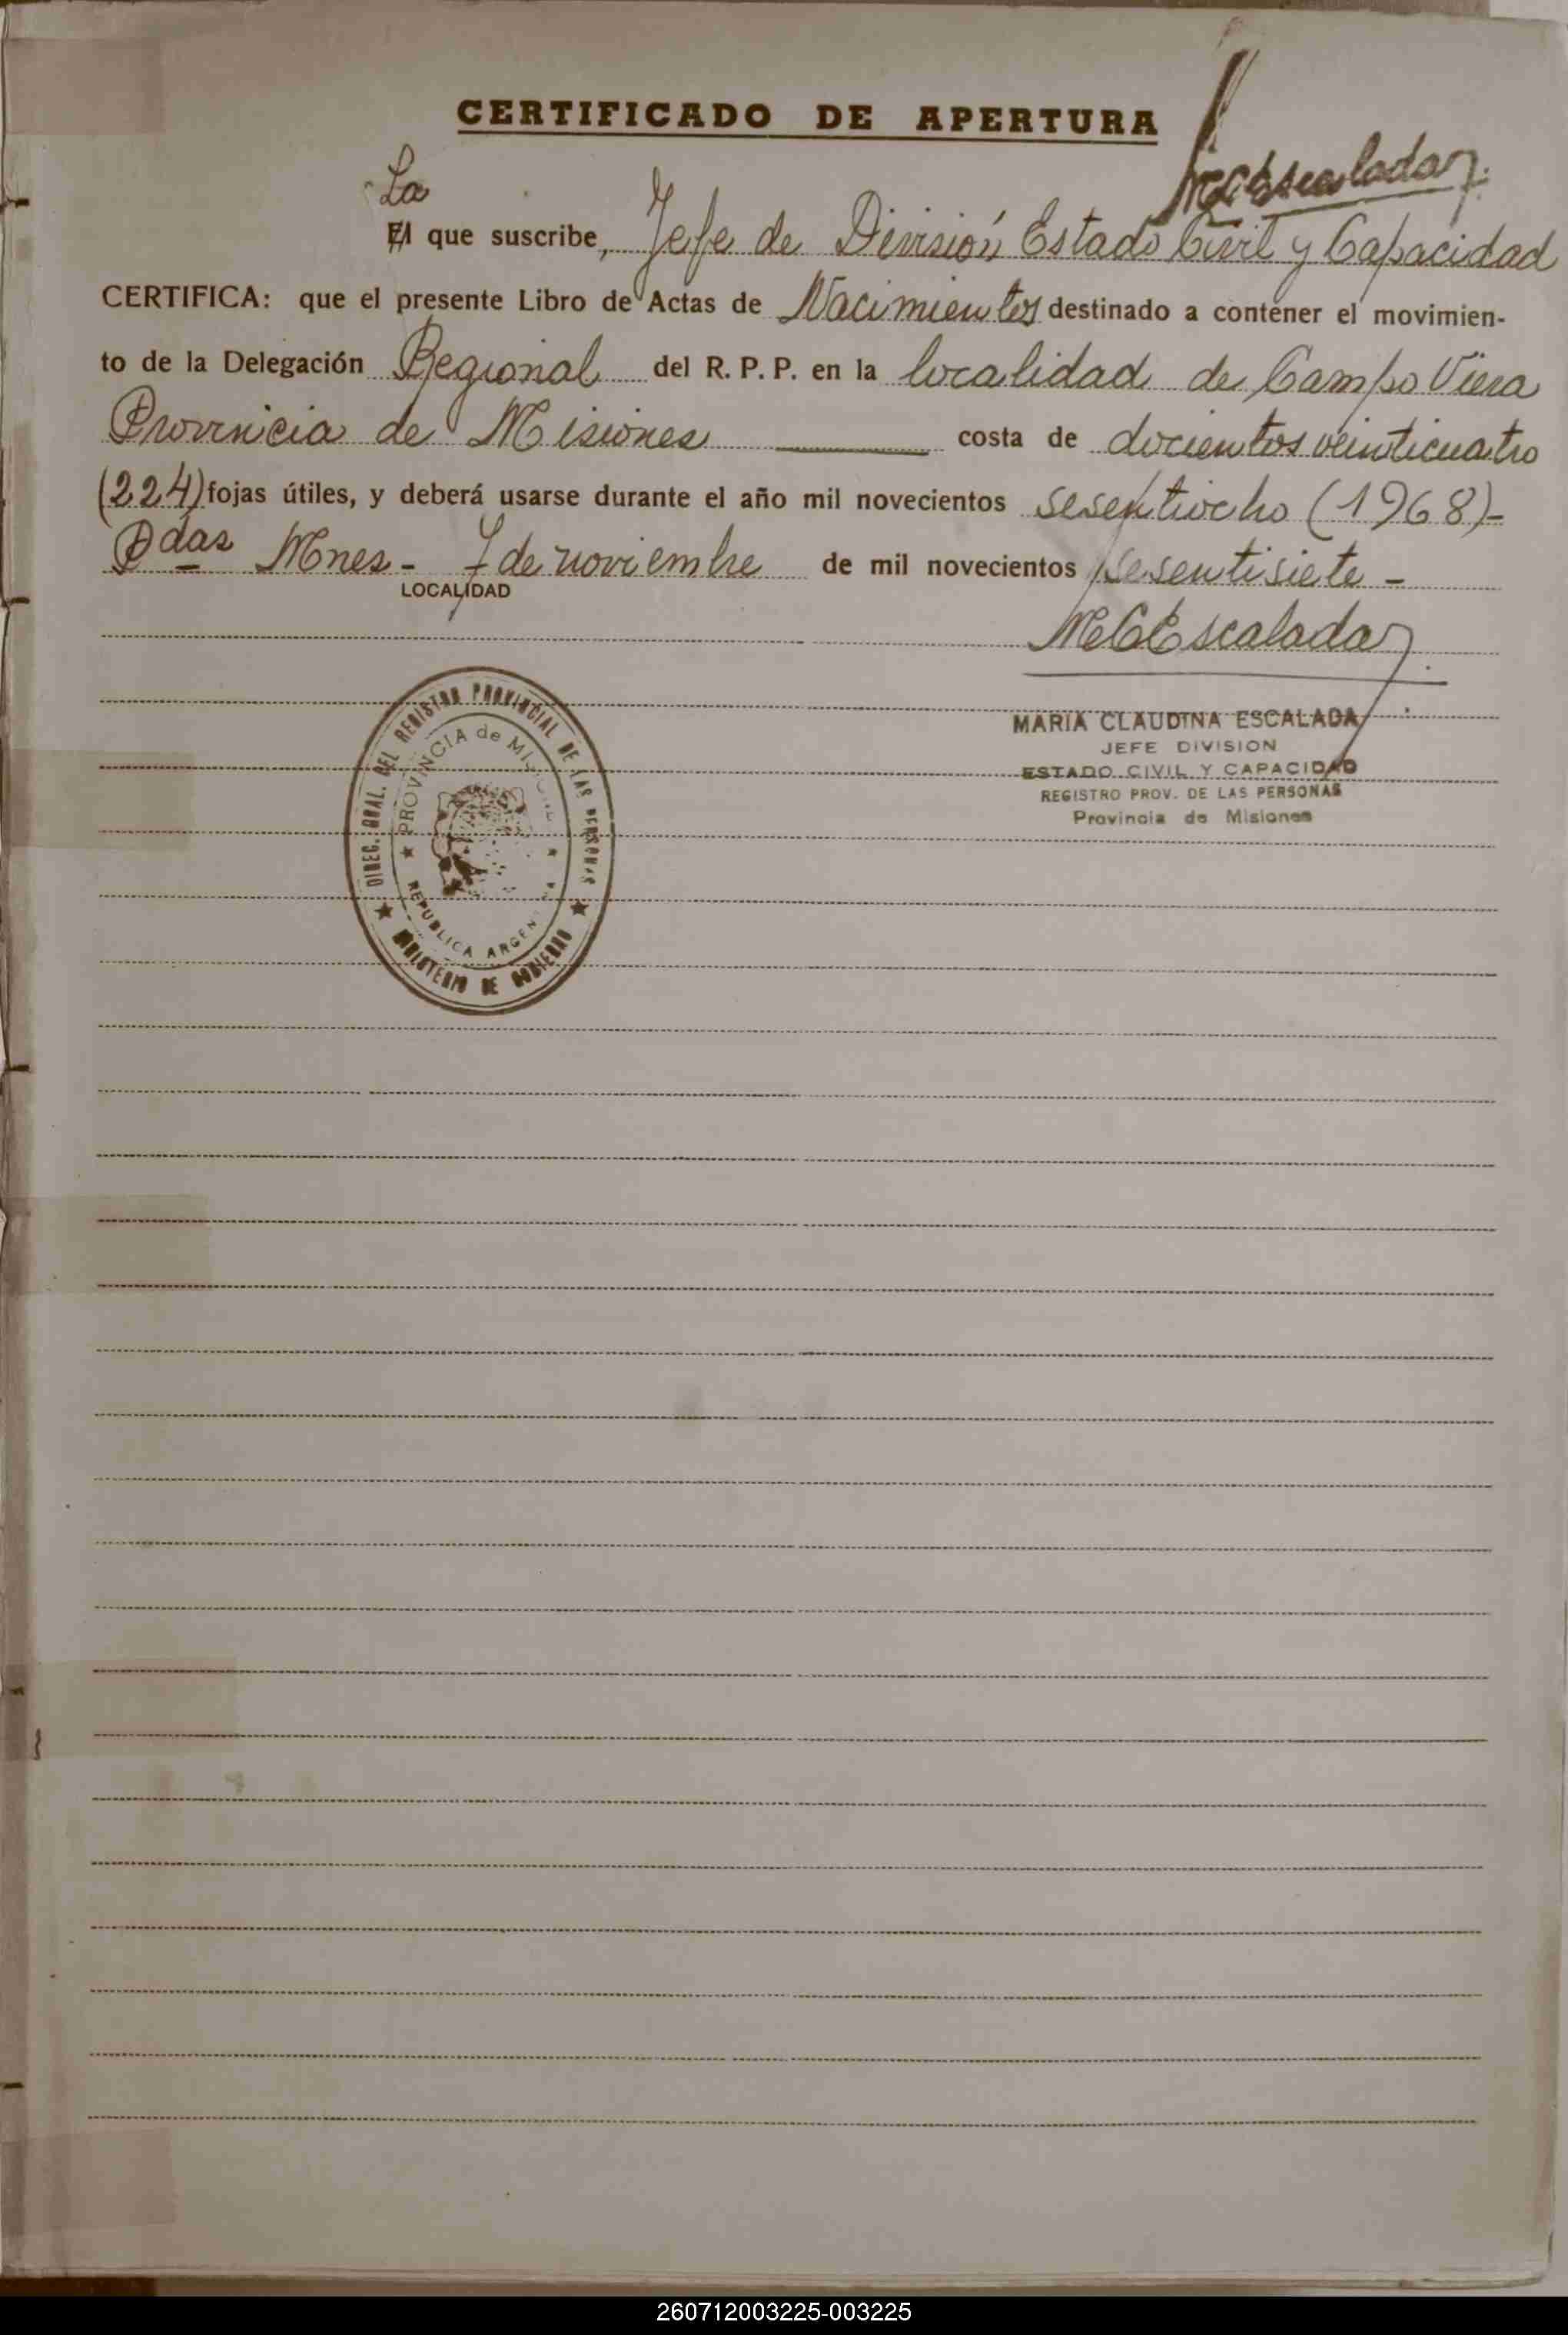 CERTIFICADO DE APERTURA
MCEscalada
La
El que suscribe, Jefe de División Estado Civil y Capacidad
CERTIFICA: que el presente Libro de Actas de Nacimientos destinado a contener el movimien-
to de la Delegación Regional del R. P. P. en la localidad de Campo Viera
Provincia de Misiones costa de docientos veinticuatro
(224) fojas útiles, y deberá usarse durante el año mil novecientos sesentiocho (1968)-
Pdas Mnes - 7 de noviembre de mil novecientos sesentisiete -
LOCALIDAD
MCEscalada
MARIA CLAUDINA ESCALADA
JEFE DIVISION
ESTADO CIVIL Y CAPACIDAD
REGISTRO PROV. DE LAS PERSONAS
Provincia de Misiones
DIREC. GRAL. DEL REGISTRO PROVINCIAL DE LAS PERSONAS
PROVINCIA de
REPUBLICA
MINISTERIO DE GOBIERNO
260712003225-003225